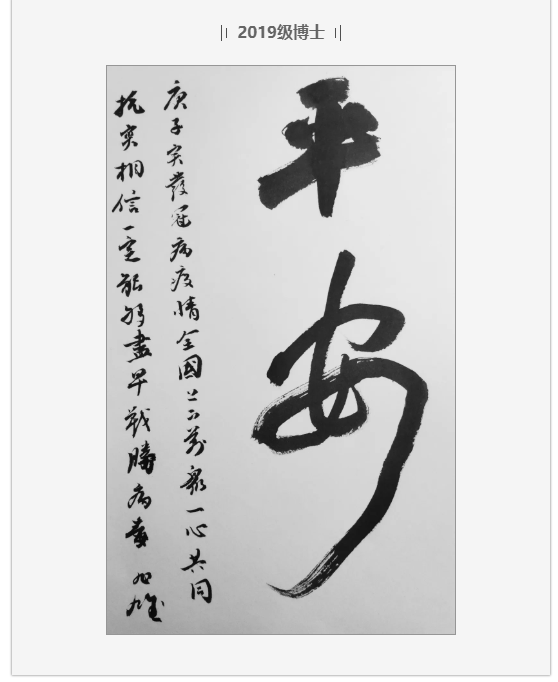 2019级博士
平安
庚子突發冠病疫情全國上下萬眾一心共同
抗疫相信一定能够盡早戰勝病毒